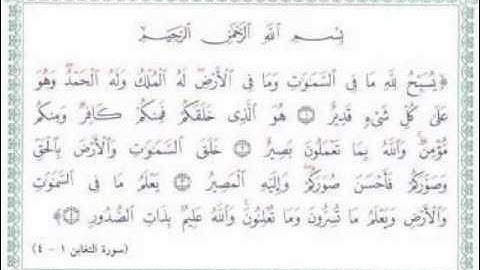 بِسْمِ اللَّهِ الرَّحْمَٰنِ الرَّحِيمِ
﴿يُسَبِّحُ لِلَّهِ مَا فِي السَّمَٰوَٰتِ وَمَا فِي الْأَرْضِ لَهُ الْمُلْكُ وَلَهُ الْحَمْدُ وَهُوَ
عَلَىٰ كُلِّ شَيْءٍ قَدِيرٌ ۝١ هُوَ الَّذِي خَلَقَكُمْ فَمِنكُمْ كَافِرٌ وَمِنكُم
مُّؤْمِنٌ وَاللَّهُ بِمَا تَعْمَلُونَ بَصِيرٌ ۝٢ خَلَقَ السَّمَٰوَٰتِ وَالْأَرْضَ بِالْحَقِّ
وَصَوَّرَكُمْ فَأَحْسَنَ صُوَرَكُمْ وَإِلَيْهِ الْمَصِيرُ ۝٣ يَعْلَمُ مَا فِي السَّمَٰوَٰتِ
وَالْأَرْضِ وَيَعْلَمُ مَا تُسِرُّونَ وَمَا تُعْلِنُونَ وَاللَّهُ عَلِيمٌ بِذَاتِ الصُّدُورِ ۝٤﴾
(سورة التغابن ١ - ٤)